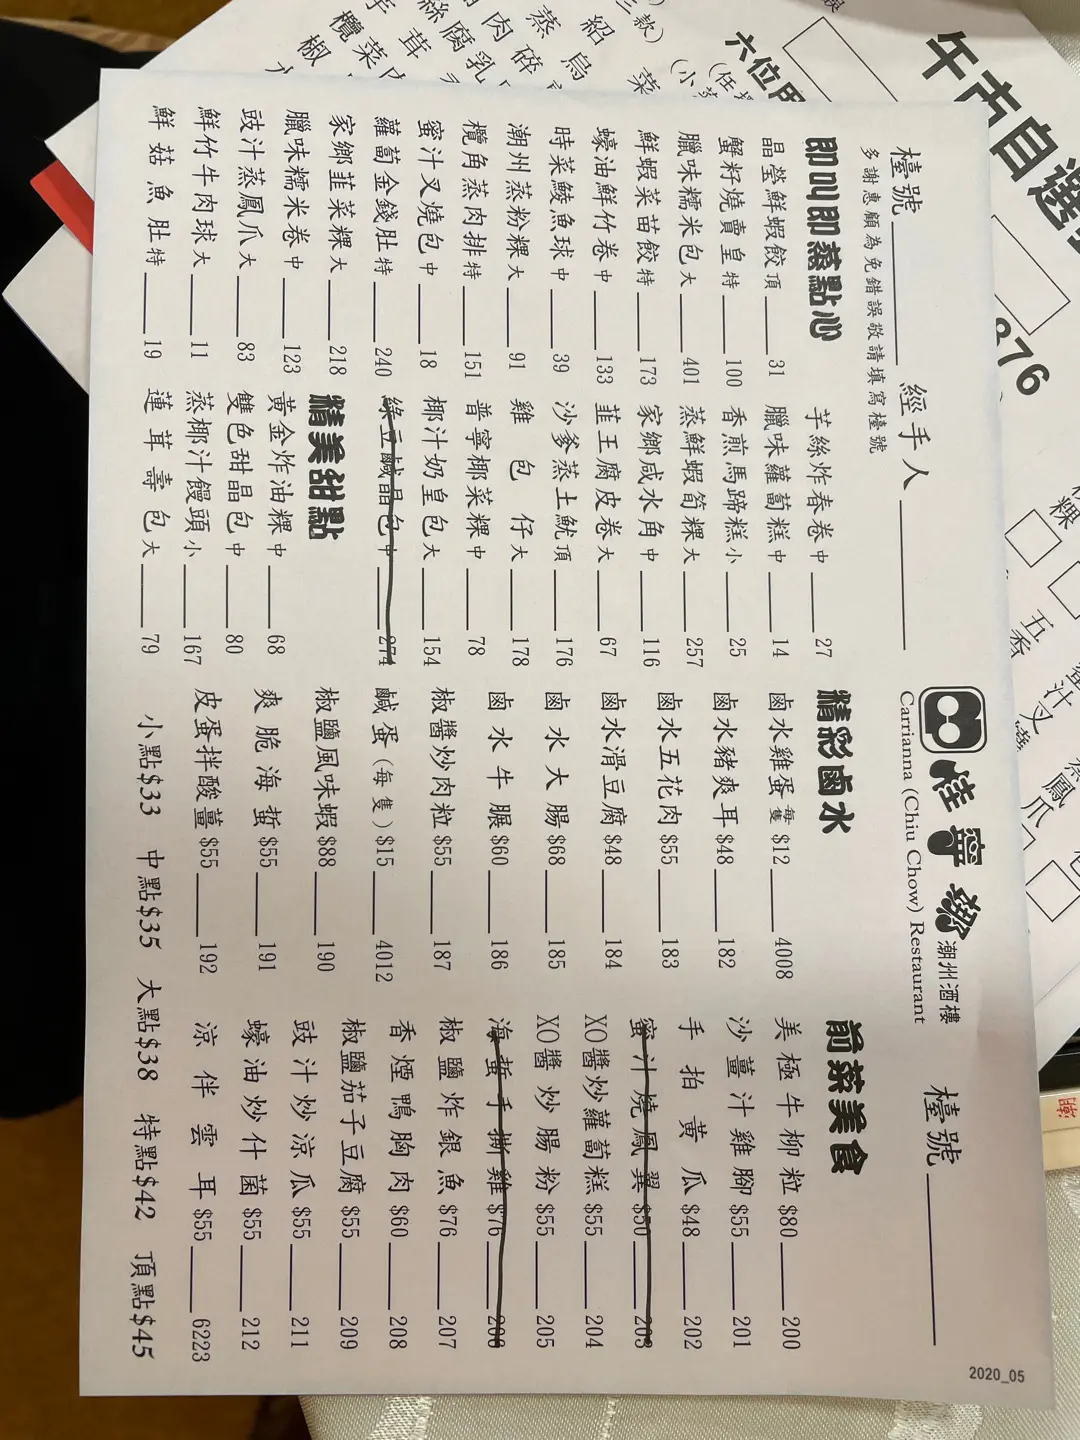 檯號
經手人
多謝惠顧為免錯誤敬請填寫檯號
桂寧鄉 潮州酒樓
Carrianna (Chiu Chow) Restaurant
檯號
即叫即蒸點心
晶瑩鮮蝦餃 頂 31
蟹籽燒賣皇 特 100
臘味糯米包 大 401
鮮蝦菜苗餃 特 173
蠔油鮮竹卷 中 133
時菜鯪魚球 中 39
潮州蒸粉粿 大 91
欖角蒸肉排 特 151
蜜汁叉燒包 中 18
蘿蔔金錢肚 特 240
家鄉韭菜粿 大 218
臘味糯米卷 中 123
豉汁蒸鳳爪 大 83
鮮竹牛肉球 大 11
鮮菇魚肚 特 19
芋絲炸春卷 中 27
臘味蘿蔔糕 中 14
香煎馬蹄糕 小 25
蒸鮮蝦筍粿 大 257
家鄉咸水角 中 116
韭王腐皮卷 大 67
沙爹蒸土魷 頂 176
雞包仔 大 178
普寧椰菜粿 中 78
椰汁奶皇包 大 154
綠豆鹹晶包 中 274
精美甜點
黃金炸油粿 中 68
雙色甜晶包 中 80
蒸椰汁饅頭 小 167
蓮茸壽包 大 79
精彩鹵水
鹵水雞蛋 每隻 $12 4008
鹵水豬爽耳 $48 182
鹵水五花肉 $55 183
鹵水滑豆腐 $48 184
鹵水大腸 $68 185
鹵水牛𦟌 $60 186
椒醬炒肉粒 $55 187
鹹蛋(每隻) $15 4012
椒鹽風味蝦 $88 190
爽脆海蜇 $55 191
皮蛋拌酸薑 $55 192
前菜美食
美極牛柳粒 $80 200
沙薑汁雞腳 $55 201
手拍黃瓜 $48 202
蜜汁燒鳳翼 $50 203
XO醬炒蘿蔔糕 $55 204
XO醬炒腸粉 $55 205
海蜇手撕雞 $76 206
椒鹽炸銀魚 $76 207
香煙鴨胸肉 $60 208
椒鹽茄子豆腐 $55 209
豉汁炒涼瓜 $55 211
蠔油炒什菌 $55 212
涼伴雲耳 $55 6223
小點$33 中點$35 大點$38 特點$42 頂點$45
2020_05
午市自選
六位用
876